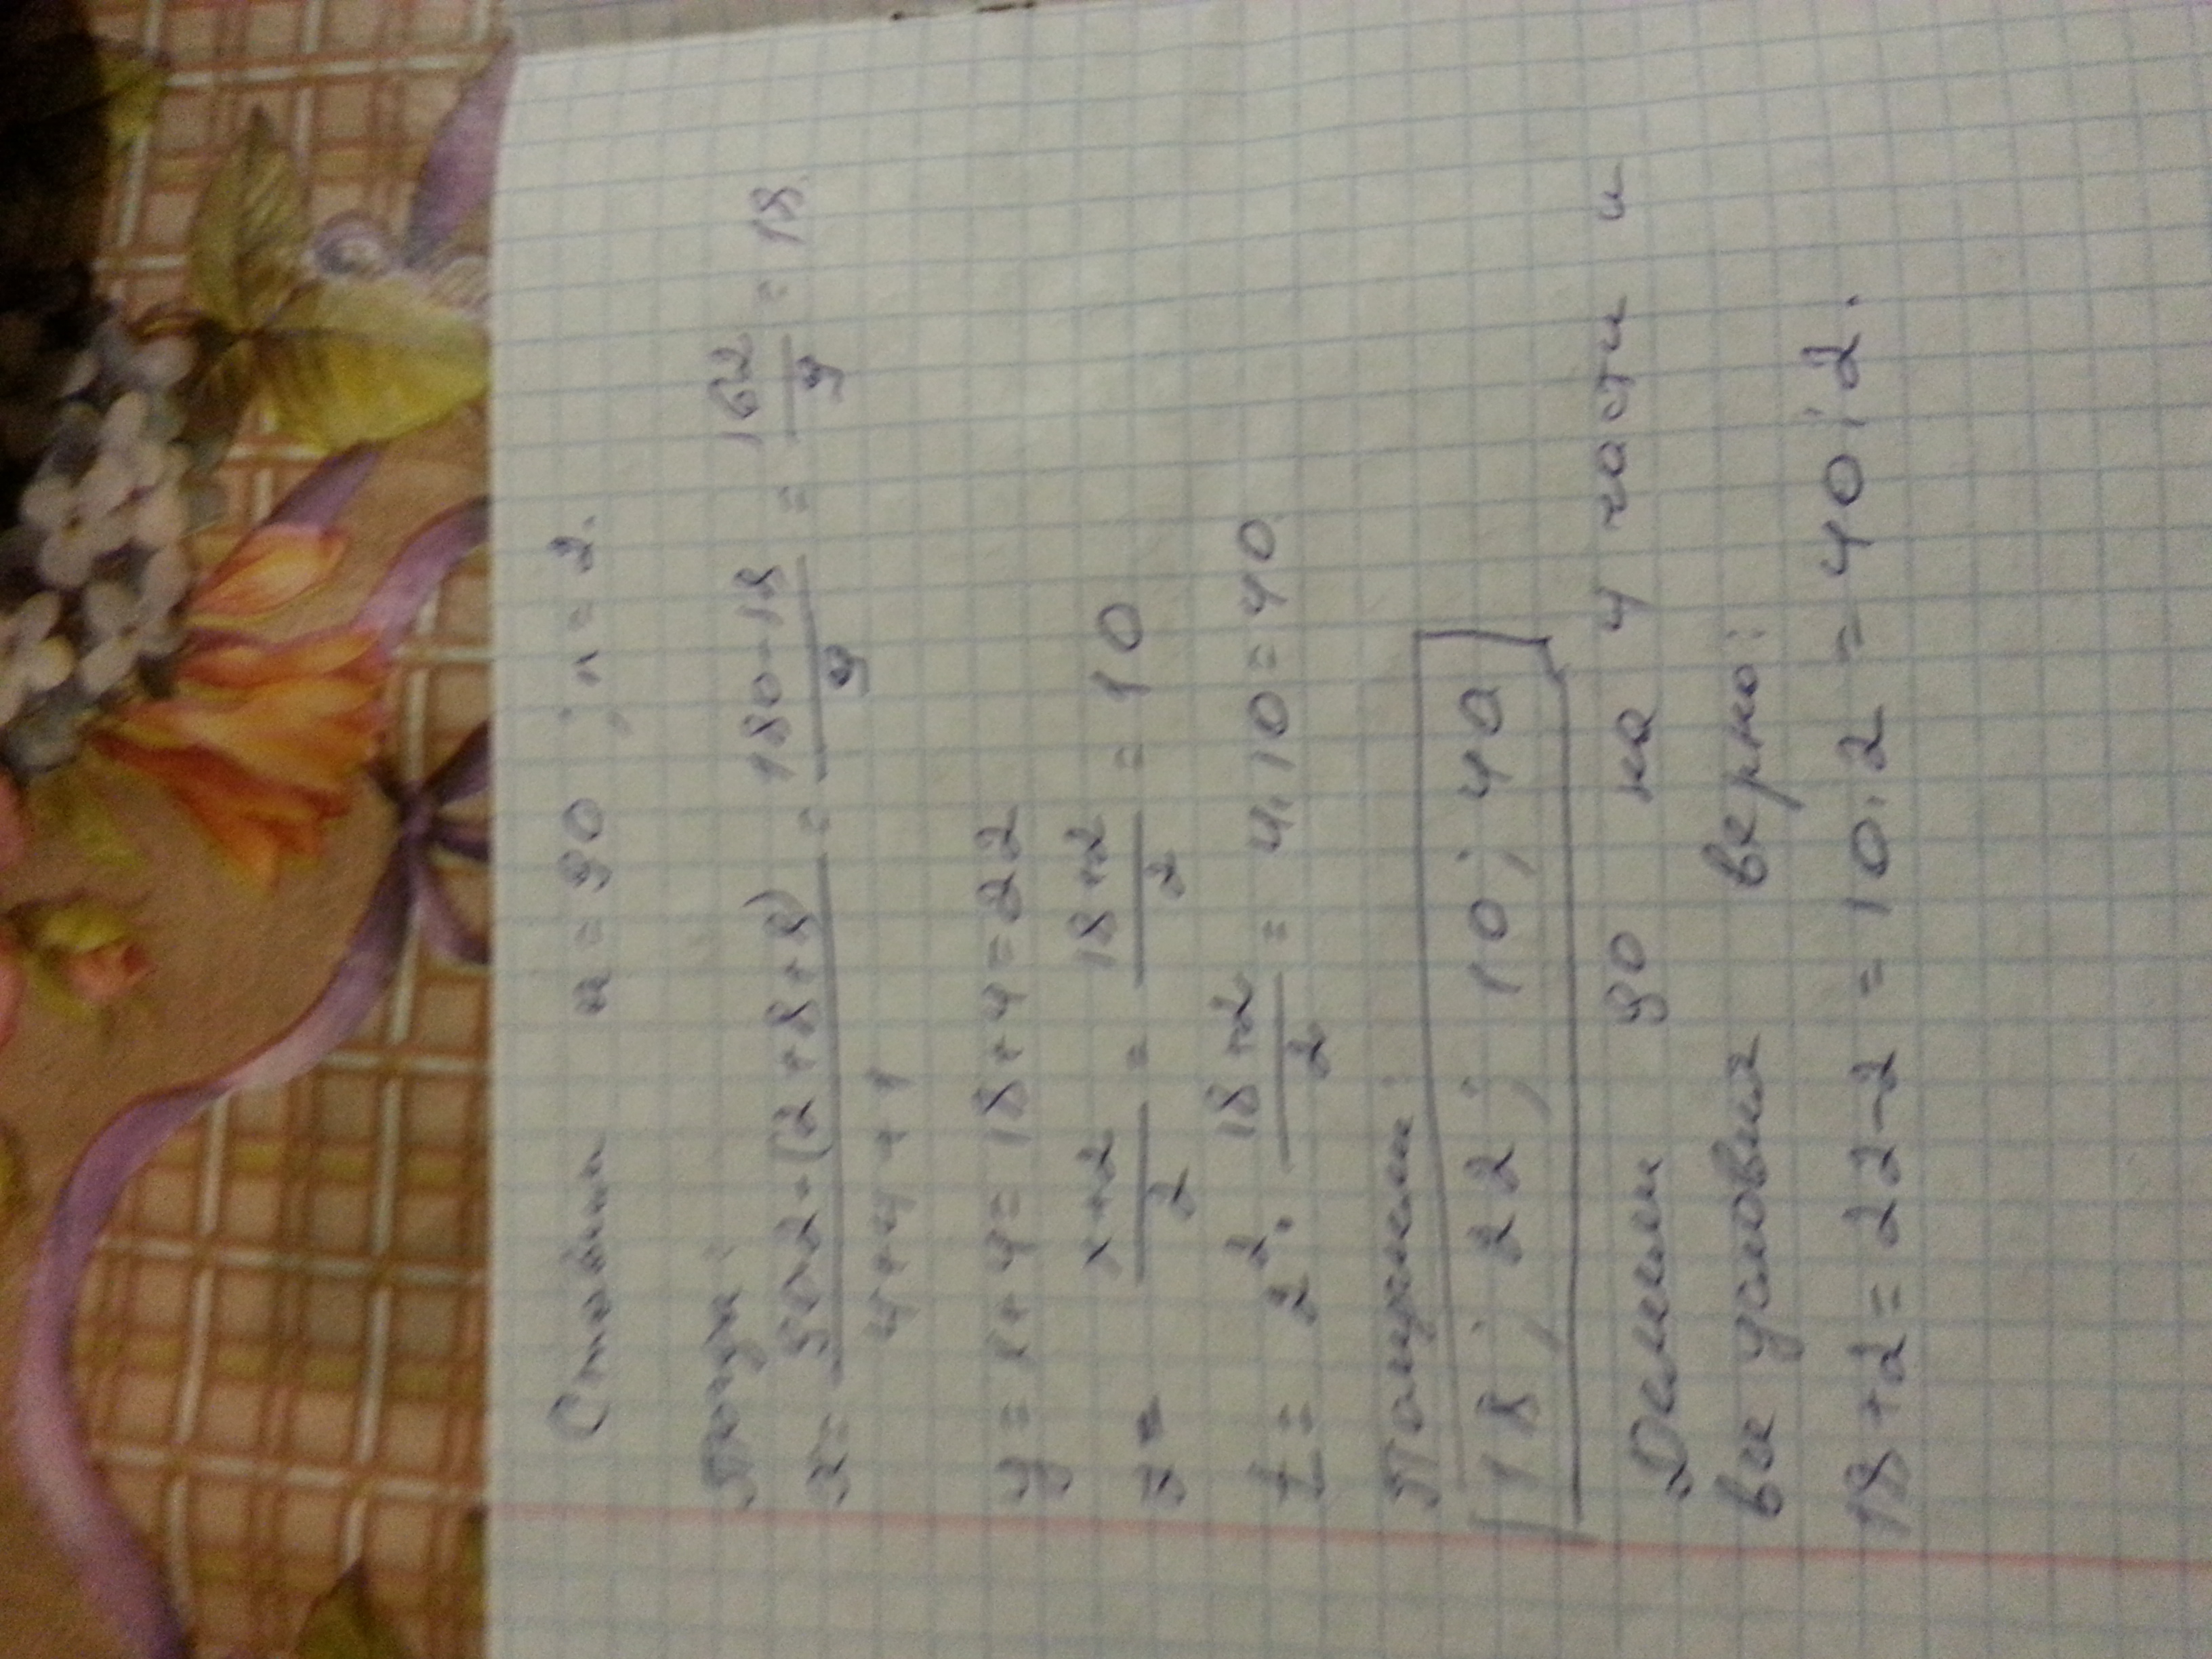 Ставим a=90; n=2.
Тогда:
x= 5n2-(2+8+8) / 4+4+1 = 180-18 / 9 = 162 / 9 = 18.
y = x+4= 18+4=22
z= x+2 / 2 = 18+2 / 2 = 10
t= 2². 18+2 / 2 = 4.10=40.
Получаем:
18; 22; 10; 40
Делим 90 на 4 части и
вы условия верно:
18+2=22-2=10.2=40:2.